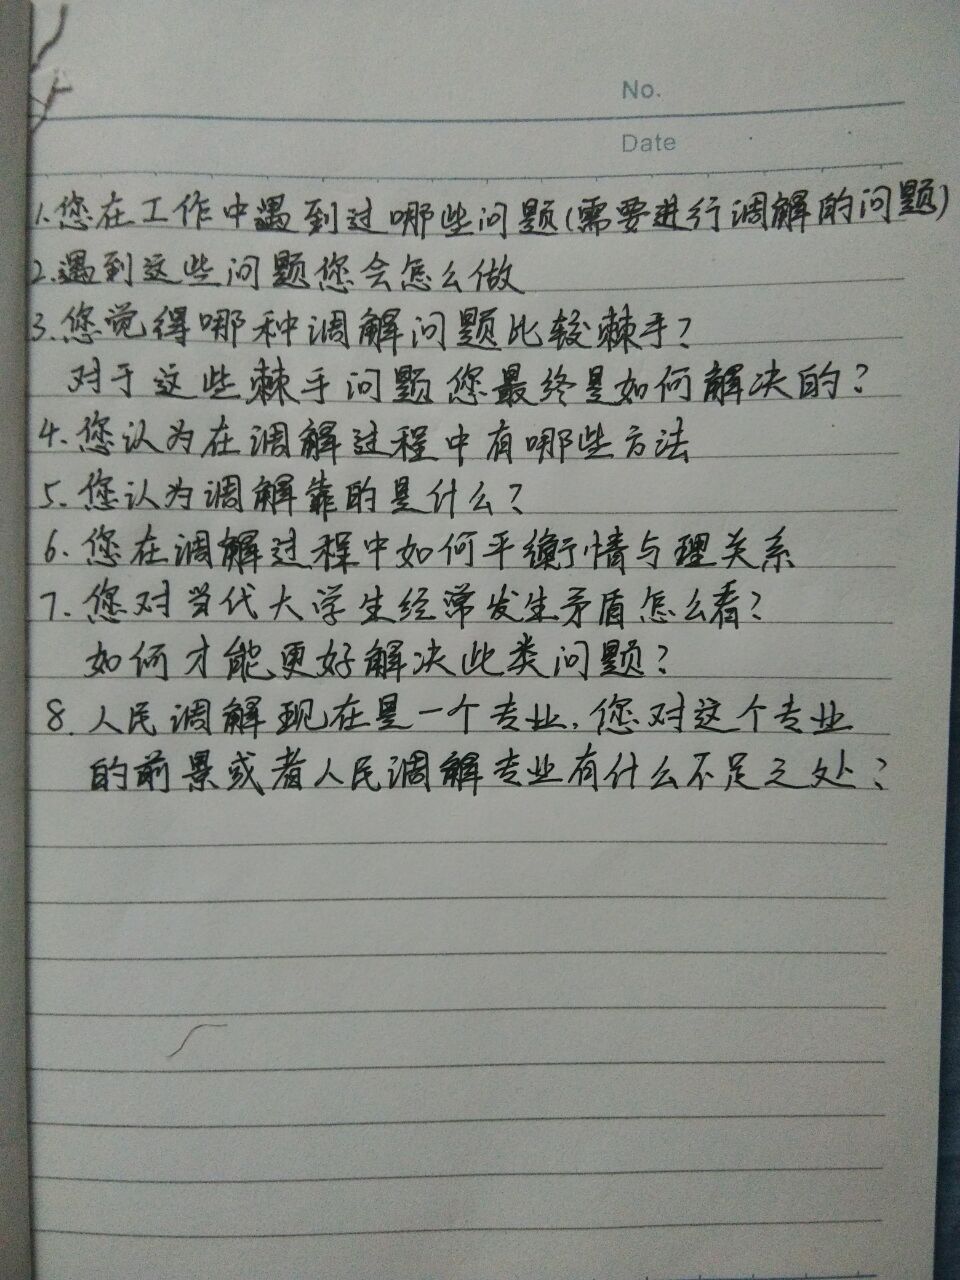 No.
Date
1.您在工作中遇到过哪些问题(需要进行调解的问题)
2.遇到这些问题您会怎么做
3.您觉得哪种调解问题比较棘手?
对于这些棘手问题您最终是如何解决的?
4.您认为在调解过程中有哪些方法
5.您认为调解靠的是什么?
6.您在调解过程中如何平衡情与理关系
7.您对当代大学生经常发生矛盾怎么看?
如何才能更好解决此类问题?
8.人民调解现在是一个专业,您对这个专业
的前景或者人民调解专业有什么不足之处?